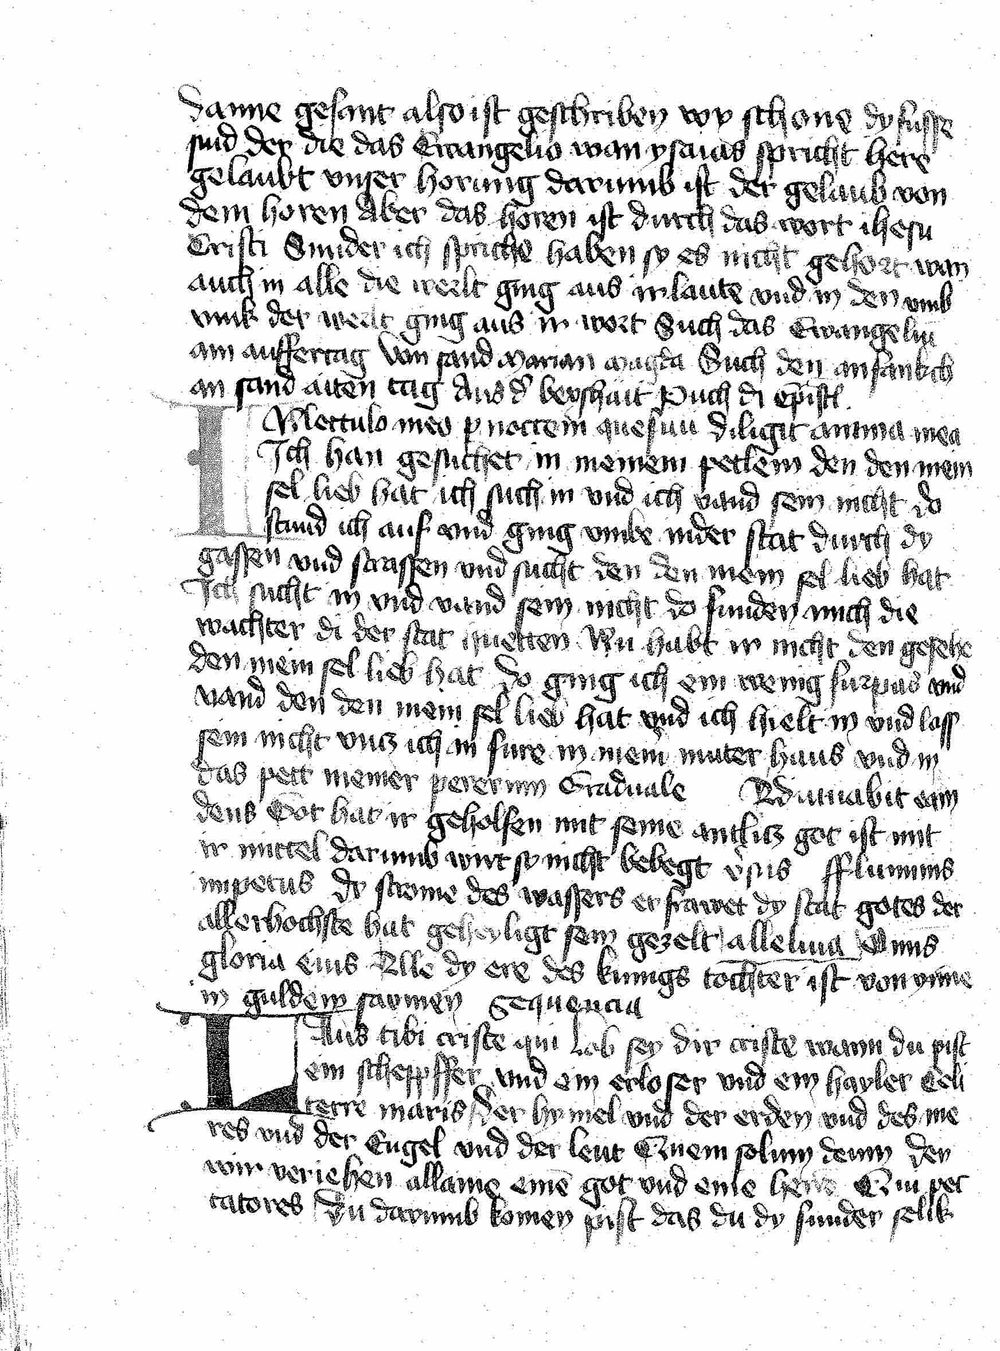 danne gesant also ist geschriben wy schone dy fusse
sind der die das Ewangelio wan ysaias spricht here
gelaubt unser horung darumb ist der gelaub von
dem horen Aber das horen ist durch das wort ihesu
Cristi Sunder ich spriche haben sy es nicht gehort wan
auch in alle die werlt ging aus ir laute vnd in den vmb
vmk der werlt ging aus ir wort Such das Ewangeliu
am auffertag von sand Marian magda Such den anfankch
an sand tag Aus d weyshait Puch di Epistl
In lectulo meo p noctem quesiui diligit anima mea
Ich han gesuchet in meinem petlein den den mein
sel lieb hat ich such in vnd ich vand sein nicht do
stund ich auf vnd ging vmbe in der stat durch dy
gassen vnd strassen vnd sucht den den mein sel lieb hat
Ich sucht in vnd vand sein nicht do funden mich die
wachter di der stat huetten Nu habt ir nicht den gesehe
den mein sel lieb hat do ging ich ein wenig furpas vnd
vand den den mein sel lieb hat vnd ich hielt in vnd lass
sein nicht vncz ich in fure in mein muter haus vnd in
das pett meiner pererinn Graduale Adiuuabit eam
deus Got hat ir geholfen mit seine antlicz got ist mit
ir mittel darumb wirt sy nicht bebegt vsus fflumins
impetus dy strome des wassers erfrawet dy stat gotes der
allerhochste hat geheyligt sein gezelt alleluia Omis
gloria eius Alle dy ere des kunigs tochter ist von ynne
in guldein sawmen Sequencia
Laus tibi criste qui Lob sey dir criste wann du pist
ein schepffer vnd ein erloser vnd ein hayler Celi
terre maris der hymel vnd der erden vnd des me
res vnd der Engel vnd der leut Quem solum deum den
wir veriehen allaine eine got vnd eine herre Qui pec
catores Du darumb komen pist das du dy sunder selik